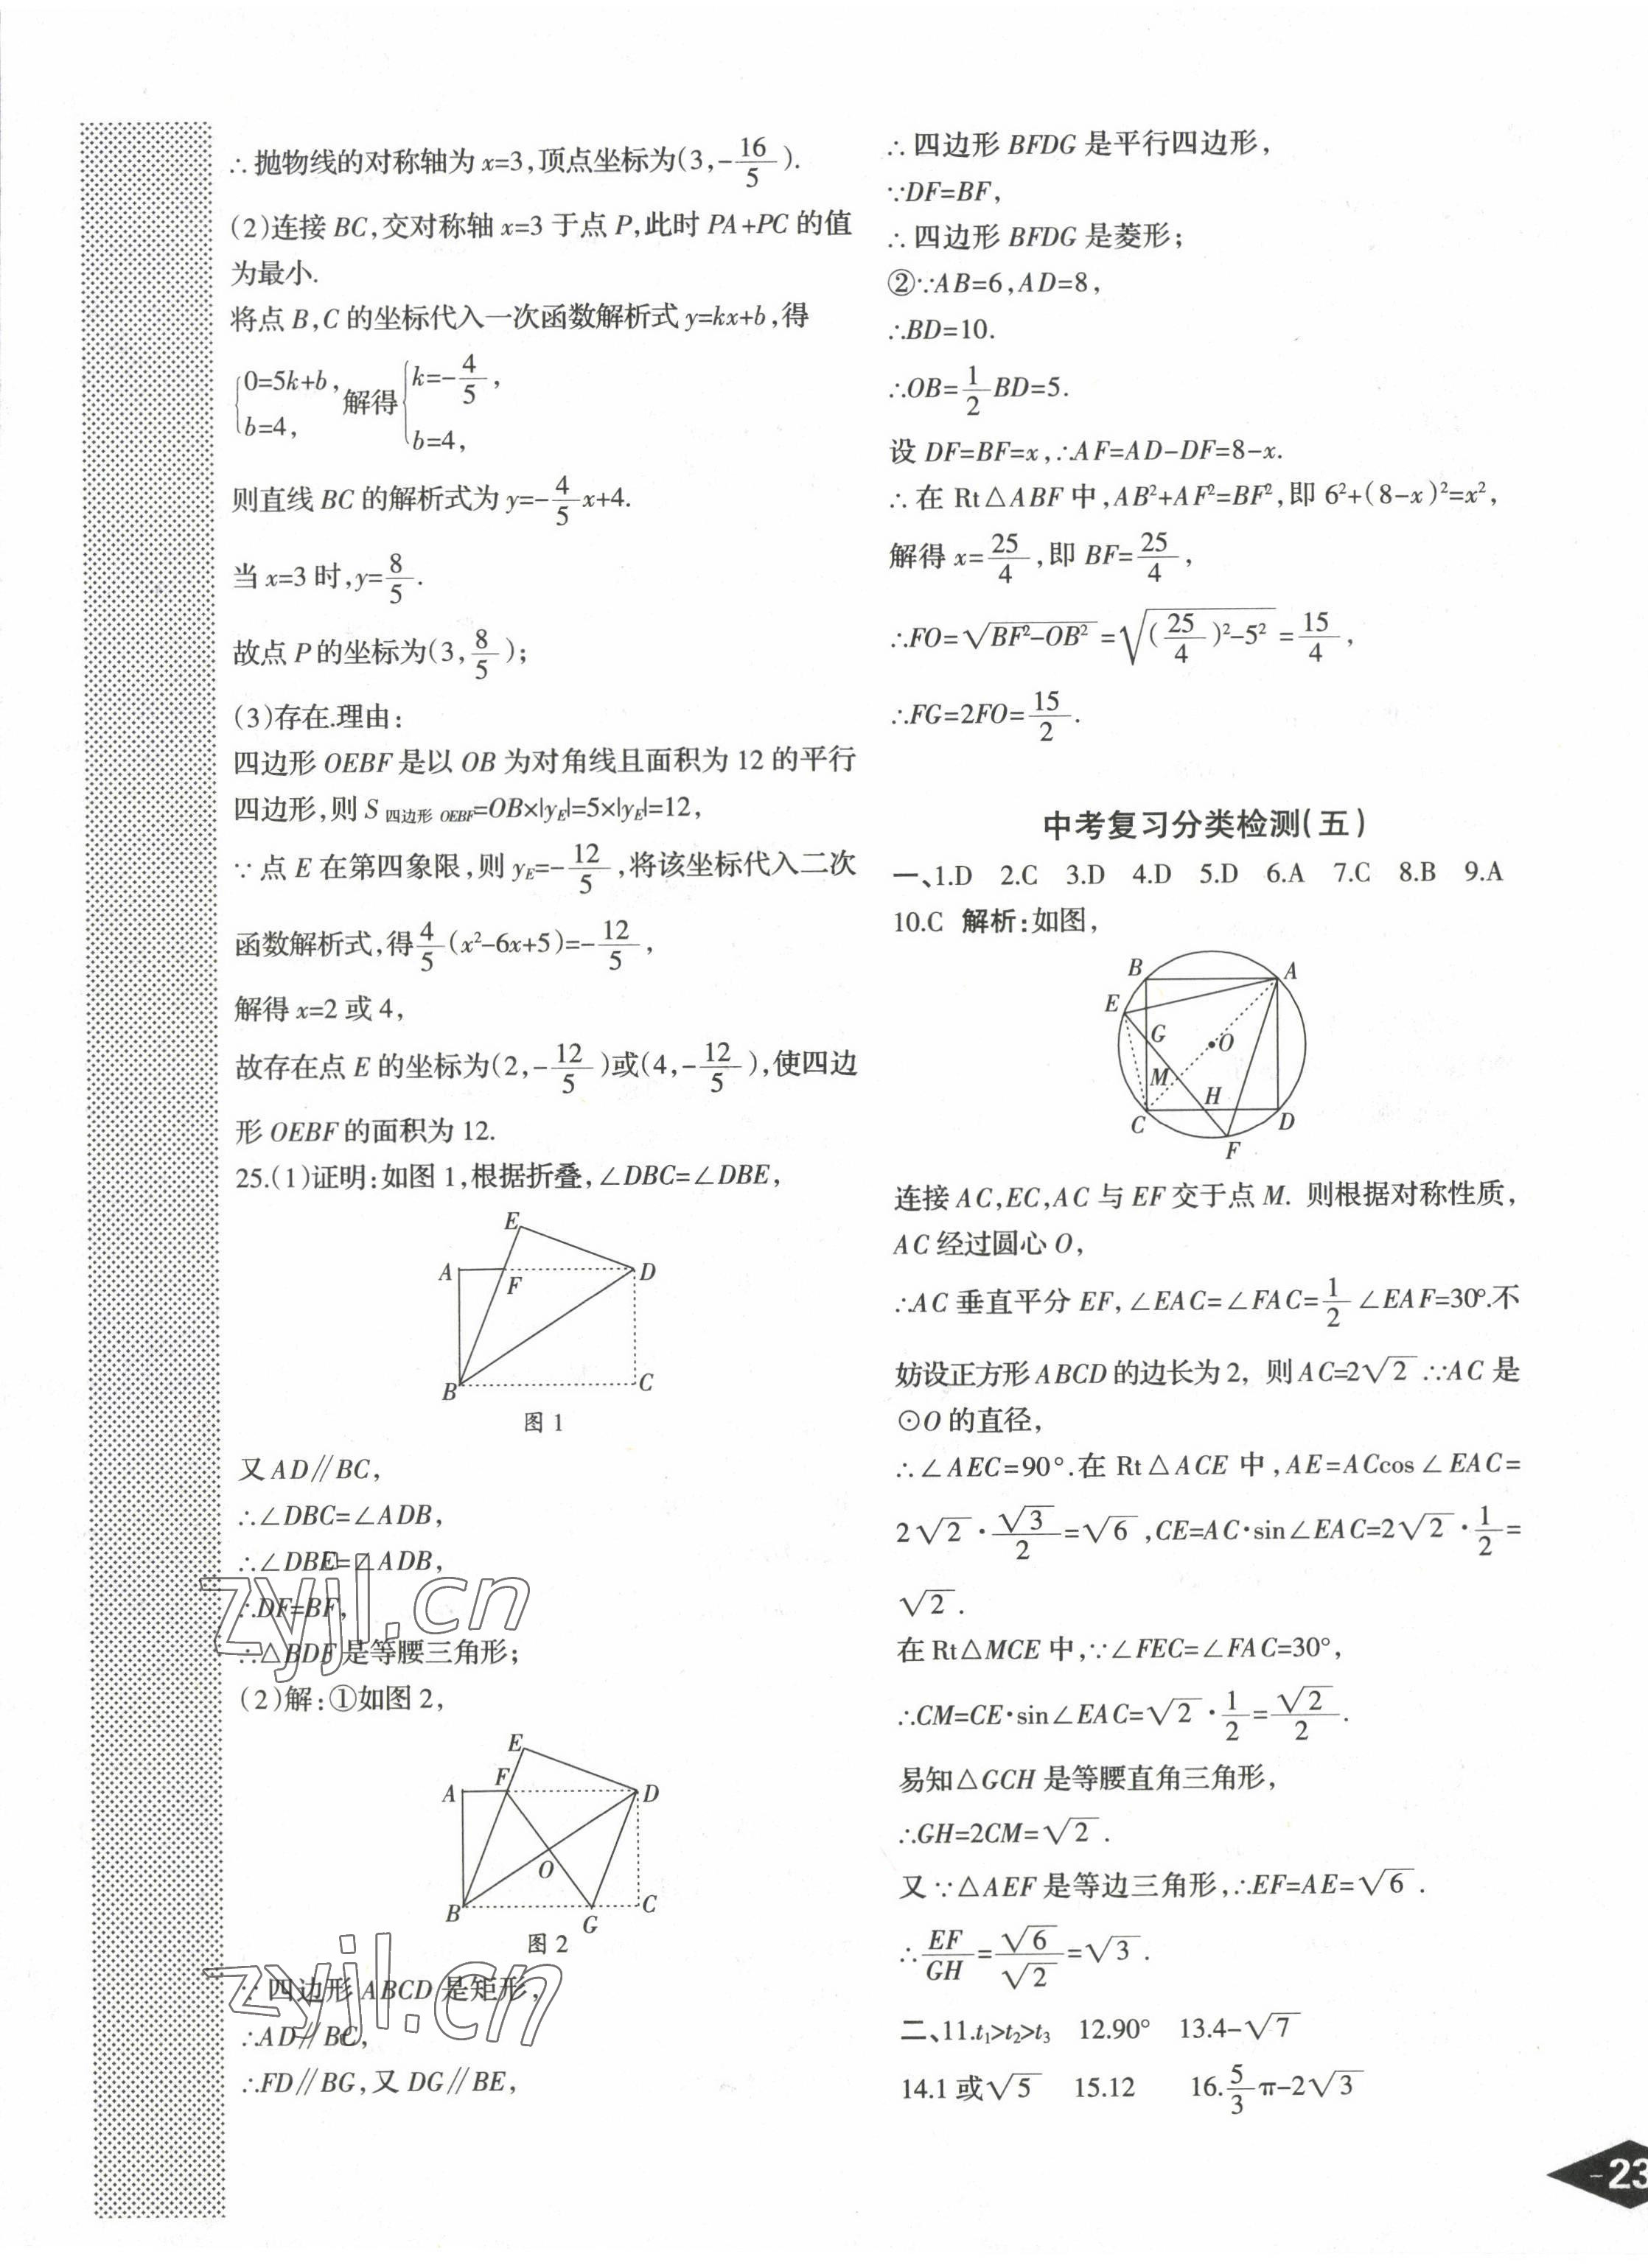 ∴抛物线的对称轴为x=3,顶点坐标为(3,-16/5).
(2)连接BC,交对称轴x=3于点P,此时PA+PC的值
为最小.
将点B,C的坐标代入一次函数解析式y=kx+b,得
{0=5k+b, b=4, 解得{k=-4/5, b=4,
则直线BC的解析式为y=-4/5x+4.
当x=3时,y=8/5.
故点P的坐标为(3,8/5);
(3)存在.理由:
四边形OEBF是以OB为对角线且面积为12的平行
四边形,则S四边形OEBF=OB×|yE|=5×|yE|=12,
∵点E在第四象限,则yE=-12/5,将该坐标代入二次
函数解析式,得4/5(x²-6x+5)=-12/5,
解得x=2或4,
故存在点E的坐标为(2,-12/5)或(4,-12/5),使四边
形OEBF的面积为12.
25.(1)证明:如图1,根据折叠,∠DBC=∠DBE,
E
A F D
B C
图1
又AD∥BC,
∴∠DBC=∠ADB,
∴∠DBE=∠ADB,
∴DF=BF,
∴△BDF是等腰三角形;
(2)解:①如图2,
E
F
A D
O
B G C
图2
∵四边形ABCD是矩形,
∴AD∥BC,
∴FD∥BG,又DG∥BE,
zyjl.cn
zyjl.cn
∴四边形BFDG是平行四边形,
∵DF=BF,
∴四边形BFDG是菱形;
②∵AB=6,AD=8,
∴BD=10.
∴OB=1/2BD=5.
设DF=BF=x,∴AF=AD-DF=8-x.
∴在Rt△ABF中,AB²+AF²=BF²,即6²+(8-x)²=x²,
解得x=25/4,即BF=25/4,
∴FO=√(BF²-OB²)=√((25/4)²-5²)=15/4,
∴FG=2FO=15/2.
中考复习分类检测(五)
一、1.D 2.C 3.D 4.D 5.D 6.A 7.C 8.B 9.A
10.C 解析:如图,
B A
E
G O
M
H
C D
F
连接AC,EC,AC与EF交于点M. 则根据对称性质,
AC经过圆心O,
∴AC垂直平分EF,∠EAC=∠FAC=1/2∠EAF=30°.不
妨设正方形ABCD的边长为2, 则AC=2√2 ∵AC是
⊙O的直径,
∴∠AEC=90°.在Rt△ACE中,AE=ACcos∠EAC=
2√2·√3/2=√6,CE=AC·sin∠EAC=2√2·1/2=
√2.
在Rt△MCE中,∵∠FEC=∠FAC=30°,
∴CM=CE·sin∠EAC=√2·1/2=√2/2.
易知△GCH是等腰直角三角形,
∴GH=2CM=√2.
又∵△AEF是等边三角形,∴EF=AE=√6.
∴EF/GH=√6/√2=√3.
二、11.t₁>t₂>t₃ 12.90° 13.4-√7
14.1或√5 15.12 16.5/3π-2√3
-23